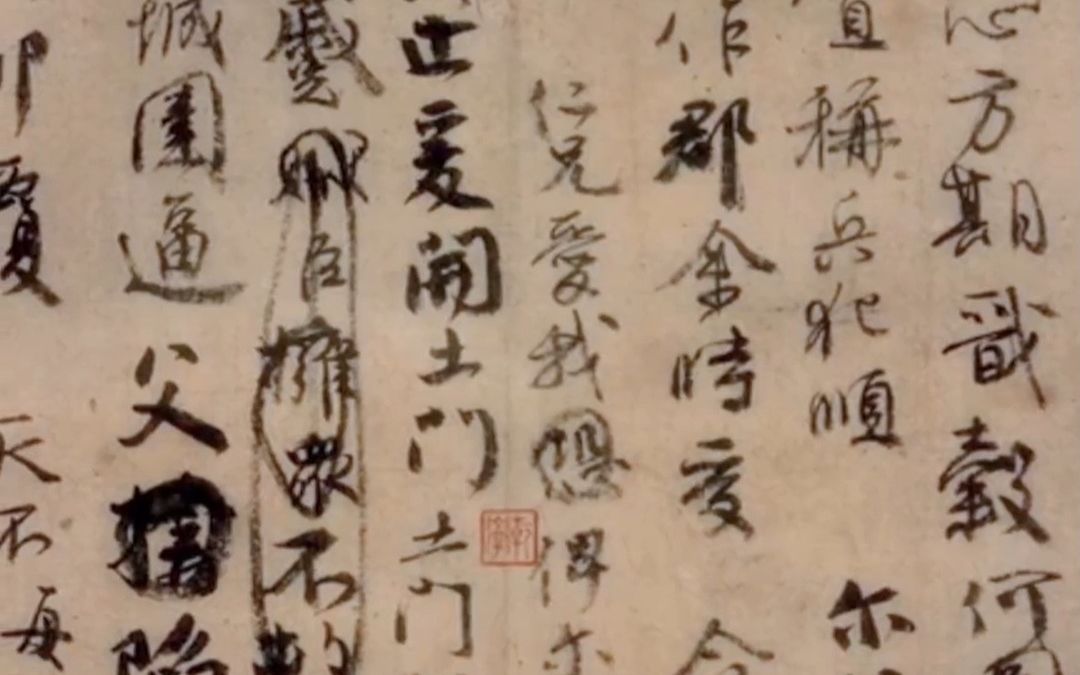 心方期戩穀何
稱兵犯順 尔
作郡余時受
仁兄愛我恐俾尔
止爰開土門土門
蹙賊臣擁眾不救
城圍逼父陷
卵覆 天不